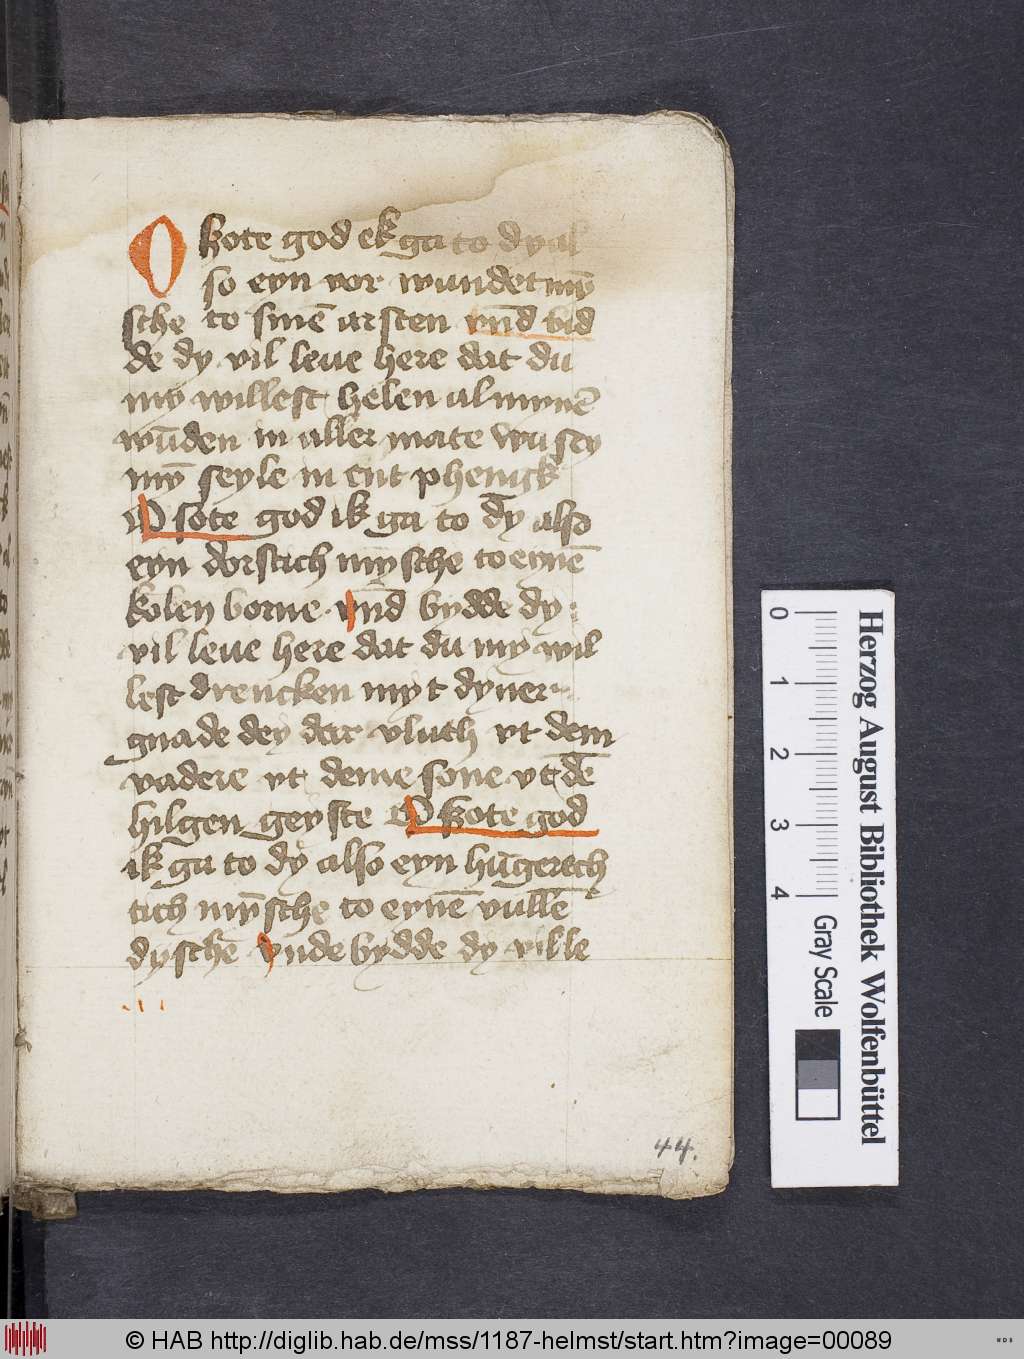 O sote god ek ga to dy al
so eyn vor wundet mỹ
sche to sinē arsten vn̄d bid
de dy vil leue here dat du
my willest helen al mynē
wūden in aller mate wu sey
mȳ seyle in ent phengk
O sote god ik ga to dy also
eyn dorstich mȳsche to eynē
kolen borne vn̄d bydde dy
vil leue here dat du my wil
lest drencken myt dyner
gnade dey dar vluth vt dem
vadere vt deme sone vt dē
hilgen geyste O sote god
ik ga to dy also eyn hūgerich
tich mȳsche to eynē vullē
dyschē vnde bydde dy vil le
44.
Herzog August Bibliothek Wolfenbüttel
0 1 2 3 4 Gray Scale
© HAB http://diglib.hab.de/mss/1187-helmst/start.htm?image=00089